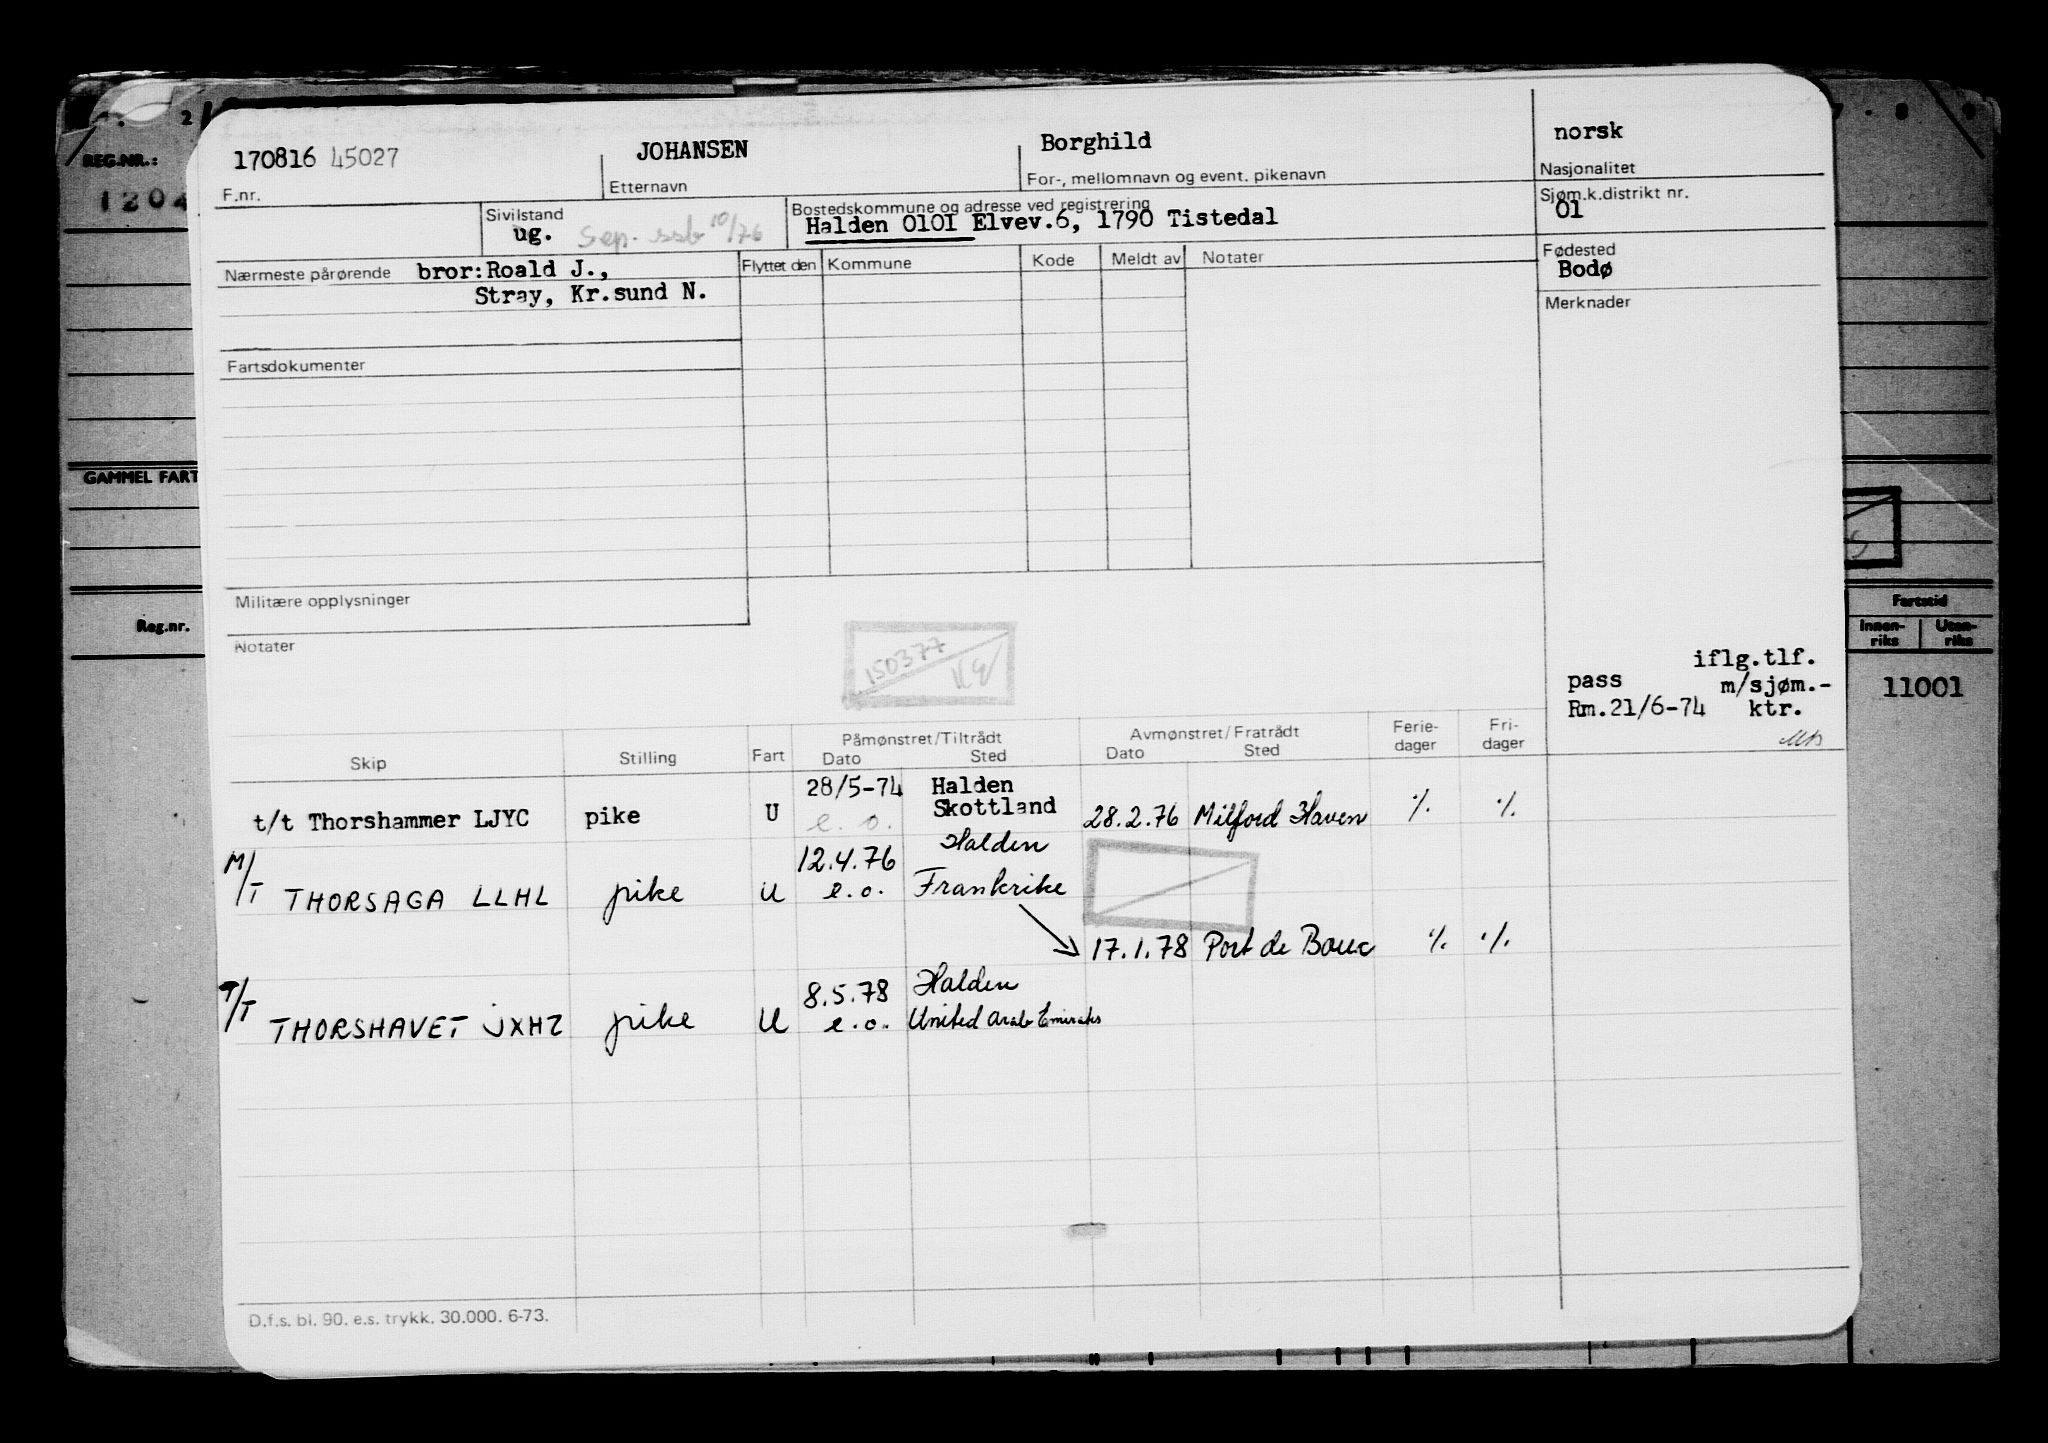 2
7 . 8 . 9
REG.NR.:
1204
170816 45027
F.nr.
JOHANSEN
Etternavn
Borghild
For-, mellomnavn og event. pikenavn
norsk
Nasjonalitet
Sivilstand
ug. Sep. ssb 10/76
Bostedskommune og adresse ved registrering
Halden 0101 Elvev.6, 1790 Tistedal
Sjøm.k.distrikt nr.
01
Nærmeste pårørende bror:Roald J.,
Stray, Kr.sund N.
Flyttet den Kommune Kode Meldt av Notater
Fødested
Bodø
Merknader
Fartsdokumenter
GAMMEL FART
Militære opplysninger
Reg.nr.
Notater
150377
Fartstid
Innen-
riks
Uten-
riks
11001
iflg.tlf.
pass m/sjøm.-
Rm.21/6-74 ktr.
Skip Stilling Fart Påmønstret/Tiltrådt Dato Sted Avmønstret/Fratrådt Dato Sted Ferie-
dager Fri-
dager
28/5-74 Halden
t/t Thorshammer LJYC pike U e.o. Skottland 28.2.76 Milford Haven ·/. ·/.
12.4.76 Halden
M/T THORSAGA LLHL pike U e.o. Frankrike
17.1.78 Port de Bouc ·/. ·/.
8.5.78 Halden
T/T THORSHAVET JXHZ pike U e.o. United Arab Emirates
D.f.s. bl. 90. e.s. trykk. 30.000. 6-73.